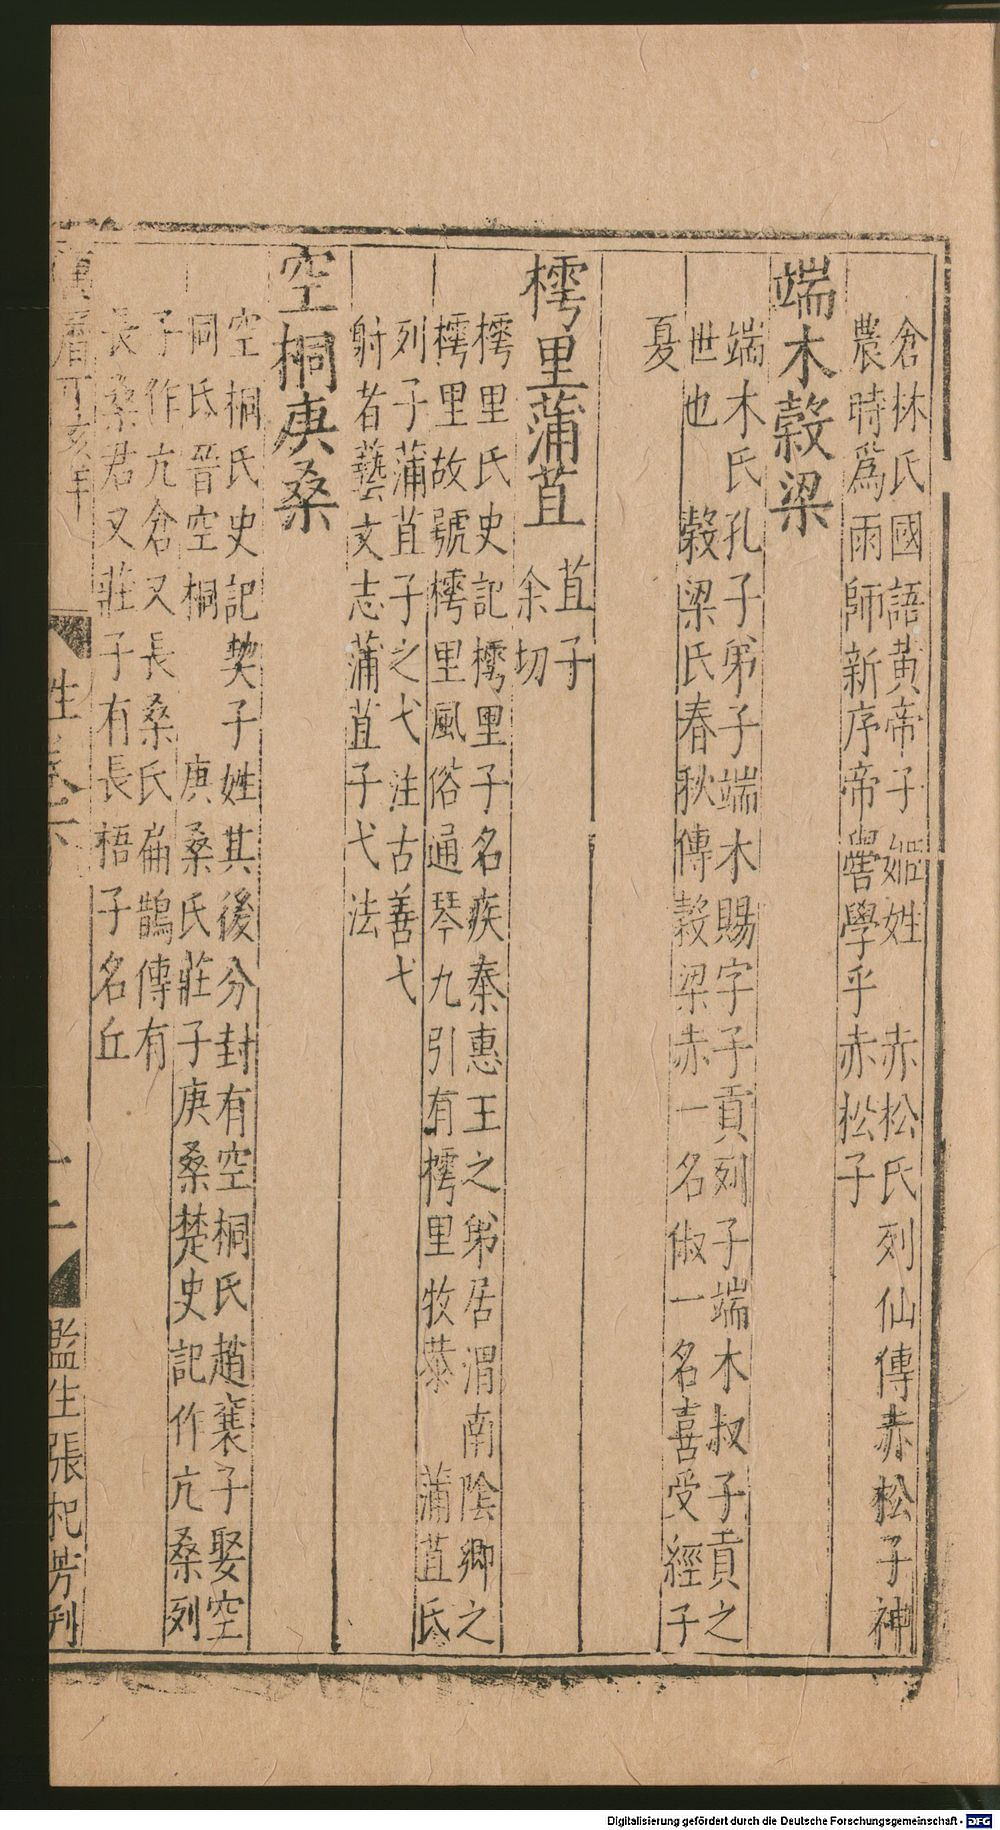 倉林氏國語黃帝子姬姓　赤松氏列仙傳赤松子神
農時爲雨師新序帝嚳學乎赤松子
端木穀梁
端木氏孔子弟子端木賜字子貢列子端木叔子貢之
世也　穀梁氏春秋傳穀梁赤一名俶一名喜受經子
夏
樗里蒲苴
苴子
余切
樗里氏史記樗里子名疾秦惠王之弟居渭南陰卿之
樗里故號樗里風俗通琴九引有樗里牧恭　蒲苴氏
列子蒲苴子之弋注古善弋
射者藝文志蒲苴子弋法
空桐庚桑
空桐氏史記契子姓其後分封有空桐氏趙襄子娶空
桐氏晉空桐　庚桑氏莊子庚桑楚史記作亢桑列
子作亢倉又長桑氏扁鵲傳有
長桑君又莊子有長梧子名丘
年
姓
下
監生張杞芳刊
Digitalisierung gefördert durch die Deutsche Forschungsgemeinschaft - DFG